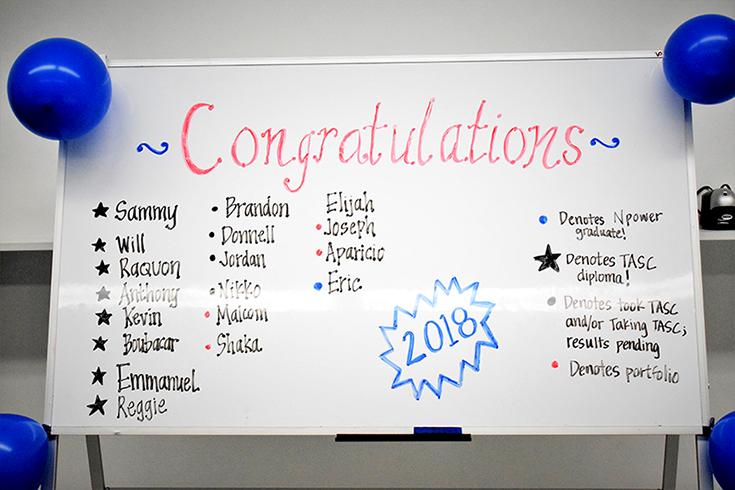 ~ Congratulations ~
★ Sammy
★ Will
★ Raquon
★ Anthony
★ Kevin
★ Boubacar
★ Emmanuel
★ Reggie
• Brandon
• Donnell
• Jordan
• Nikko
• Malcom
• Shaka
Elijah
• Joseph
• Aparicio
• Eric
2018
• Denotes NPower
graduate!
★ Denotes TASC
diploma!
• Denotes took TASC
and/or Taking TASC;
results pending
• Denotes portfolio